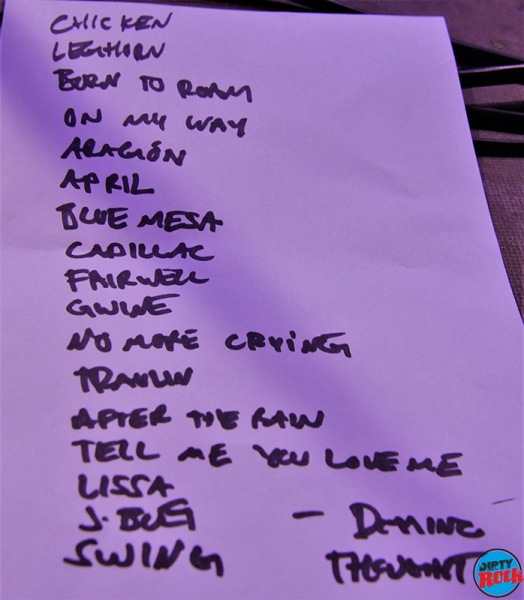 CHICKEN
LEGHORN
BORN TO ROAM
ON MY WAY
ARAGÓN
APRIL
BLUE MESA
CADILLAC
FAIRWELL
GWINE
NO MORE CRYING
TRAVLIN
AFTER THE RAIN
TELL ME YOU LOVE ME
LISSA
J. BUG - DOMINO
SWING THEWHAT
DIRTY
ROCK